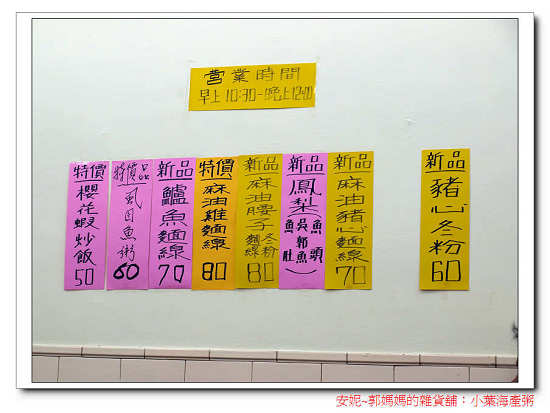 營業時間
早上10:30-晚上12:00
特價
櫻花蝦炒飯
50
特價品
虱目魚粥
60
新品
鱸魚麵線
70
特價
麻油雞麵線
80
新品
麻油腰子
冬粉
麵線
80
新品
鳳梨(
魚頭
吳郭魚
魚肚
)
新品
麻油豬心麵線
70
新品
豬心冬粉
60
安妮~郭媽媽的雜貨舖：小葉海產粥